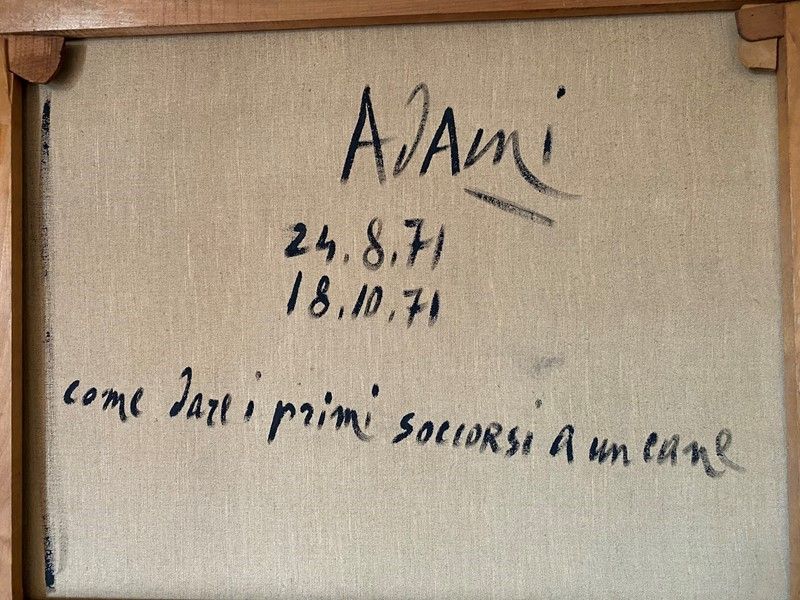 ADAmi
24.8.71
18.10.71
come dare i primi soccorsi a un cane